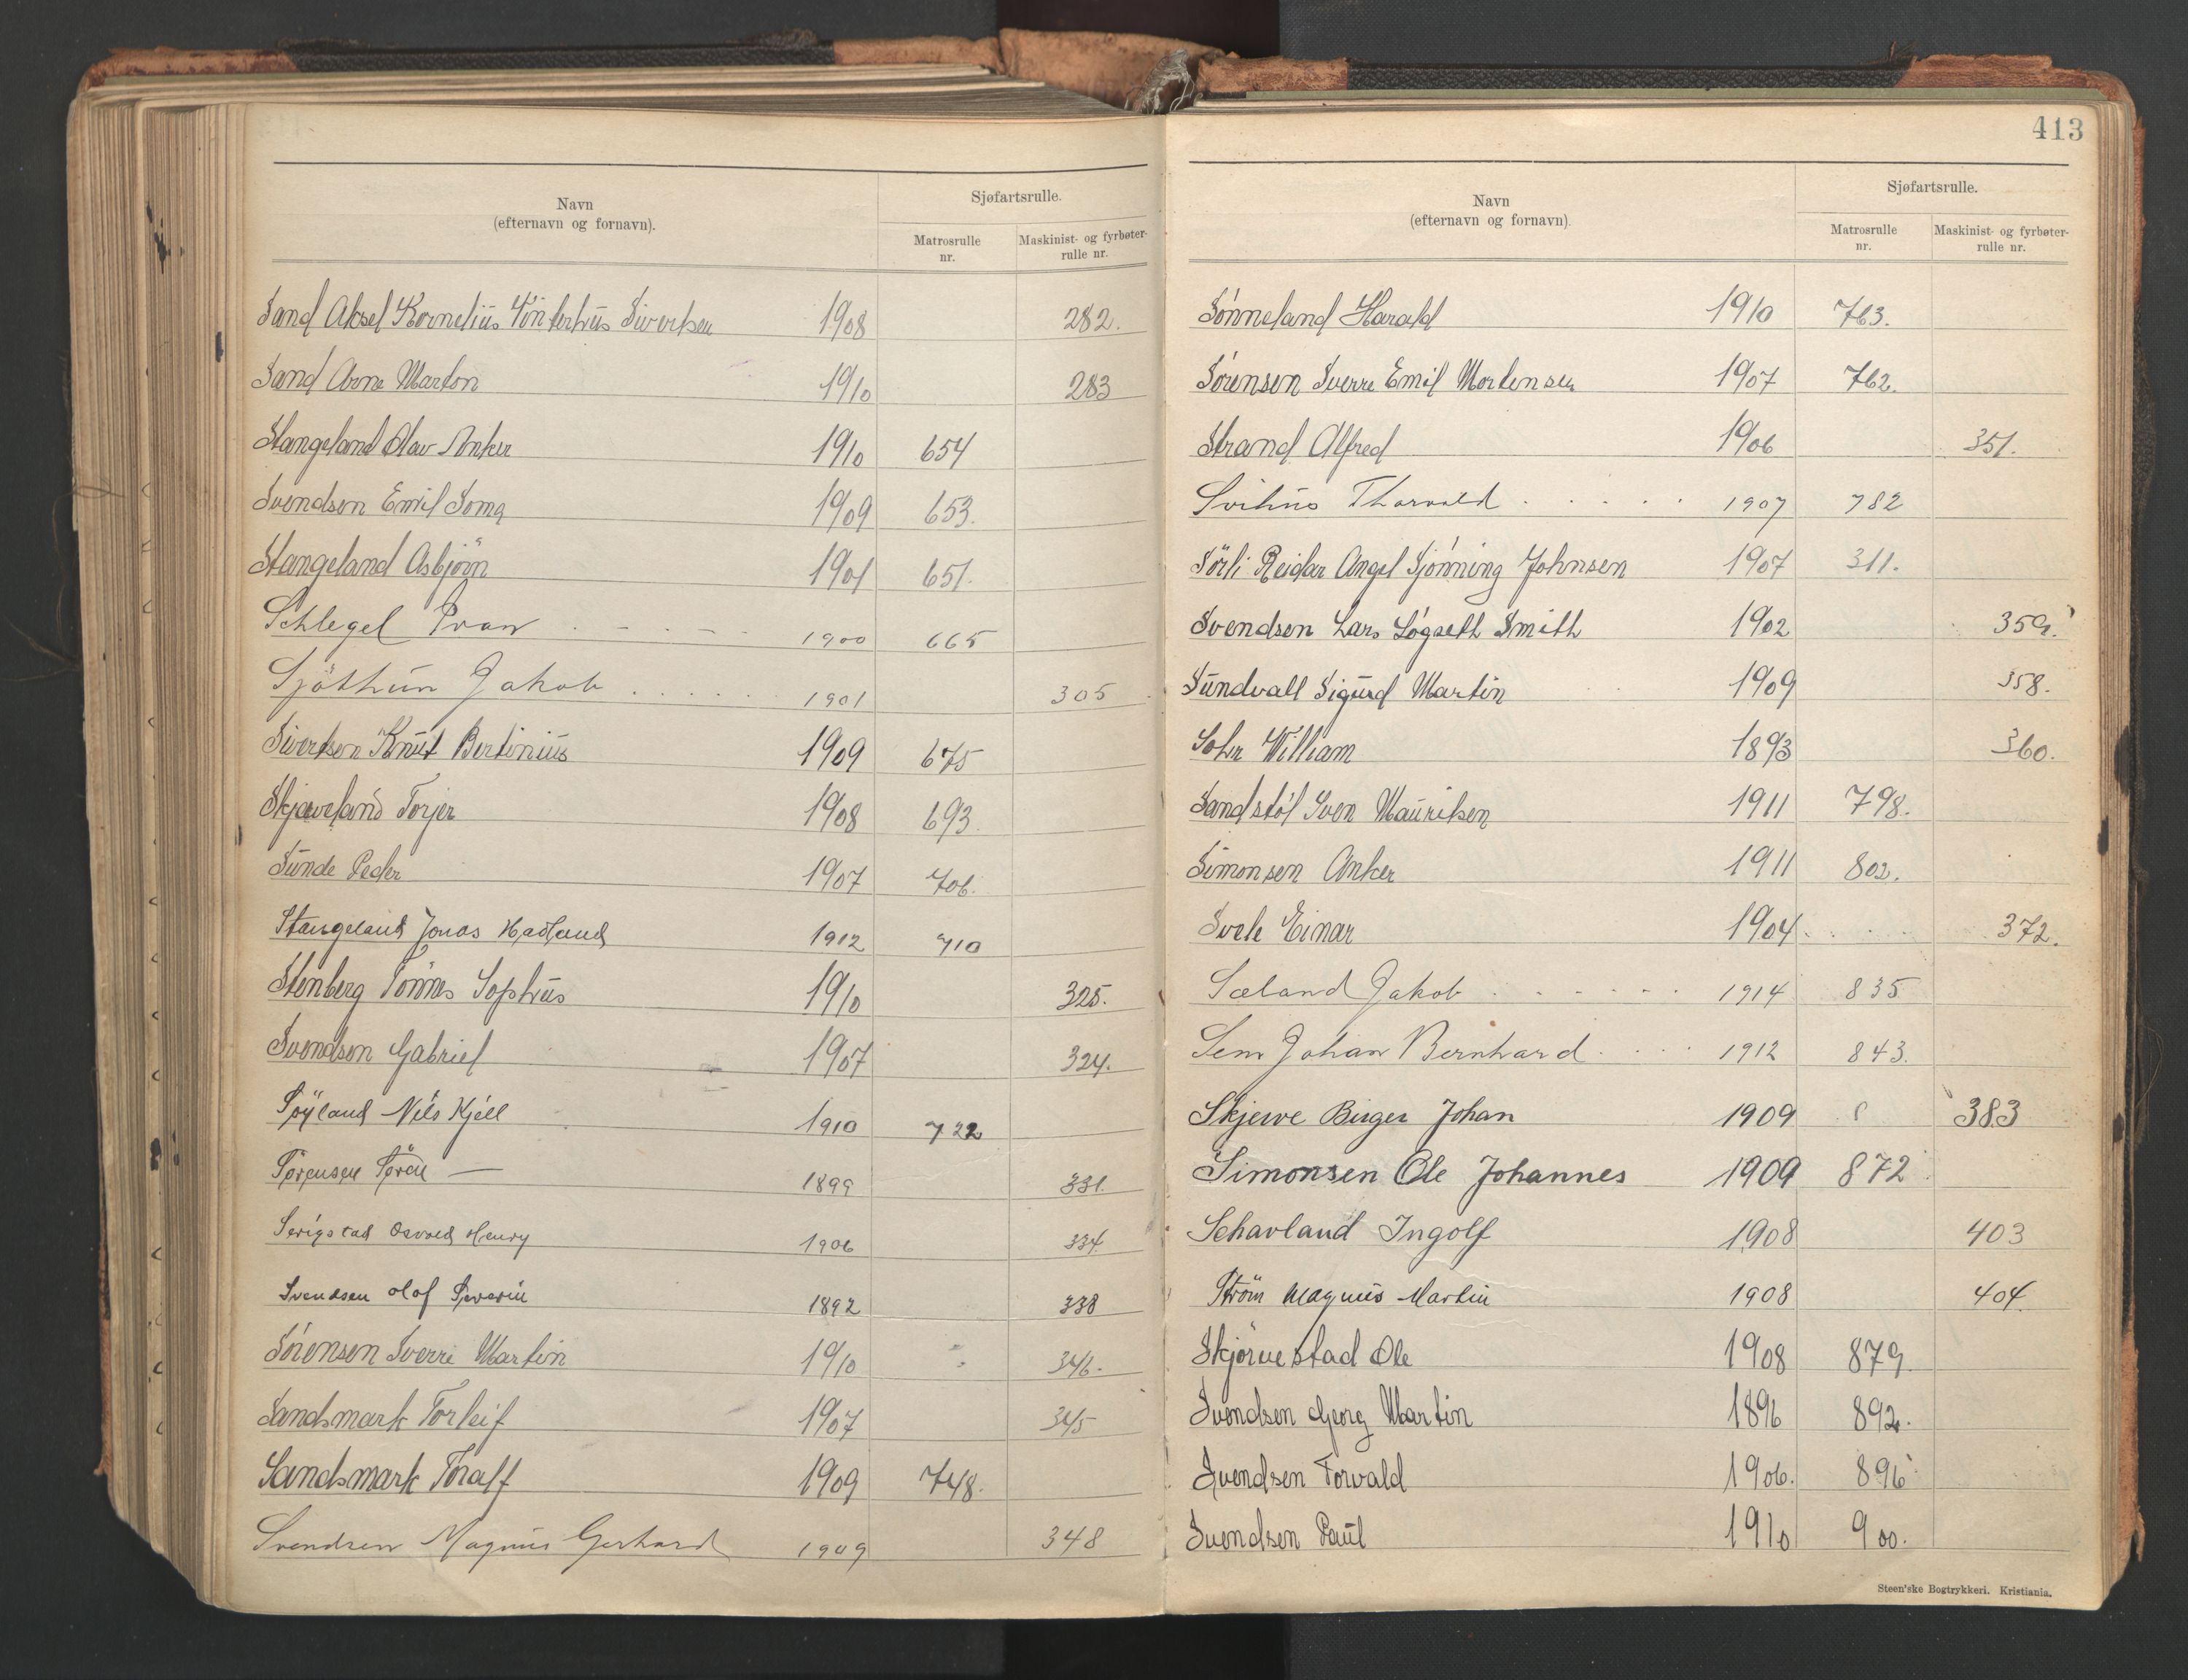 Navn
(efternavn og fornavn).
Sjøfartsrulle.
Matrosrulle nr.
Maskinist- og fyrbøter-rulle nr.
Sand Aksel Kornelius Vinterhus Sivertsen 1908 282.
Sand Arne Marton 1910 283
Stangeland Olav Anker 1910 654
Svendsen Emil Soma 1909 653.
Stangeland Asbjörn 1901 651.
Schlegel Ivan 1900 665
Sjöthun Jakob 1901 305
Sivertsen Knut Bertinius 1909 675
Skjæveland Torjer 1908 693
Sunde Peder 1907 706.
Stangeland Jonas Hadland 1912 710
Stenberg Tönnes Sophus 1910 325.
Svendsen Gabriel 1907 324.
Söyland Nils Kjell 1910 722
Sörensen Sören — 1899 331.
Serigstad Osvald Henry 1906 334
Svendsen Olof Severin 1892 338
Sörensen Sverre Martin 1910 346.
Sandsmark Torleif 1907 345
Sandsmark Toralf 1909 748.
Svendsen Magnus Gerhard 1909 348
413
Navn
(efternavn og fornavn).
Sjøfartsrulle.
Matrosrulle nr.
Maskinist- og fyrbøter-rulle nr.
Sönneland Harald 1910 763.
Sörensen Sverre Emil Mortensen 1907 762.
Strand Alfred 1906 351.
Svihus Thorvald 1907 782
Sörli Reidar Angel Sjönning Johnsen 1907 311.
Svendsen Lars Lögseth Smith 1902 359.
Sundvall Sigurd Martin 1909 358.
Sohr William 1893 360.
Sandstöl Sven Mauritsen 1911 798.
Simonsen Anker 1911 802.
Svele Einar 1904 372.
Sæland Jakob 1914 835
Sem Johan Bernhard 1912 843.
Skjerve Birger Johan 1909 383
Simonsen Ole Johannes 1909 872
Schavland Ingolf 1908 403
Ström Magnus Martin 1908 404
Skjörvestad Ole 1908 879
Svendsen Georg Martin 1896 892.
Svendsen Torvald 1906. 896
Svendsen Paul 1910 900.
Steen'ske Bogtrykkeri. Kristiania.